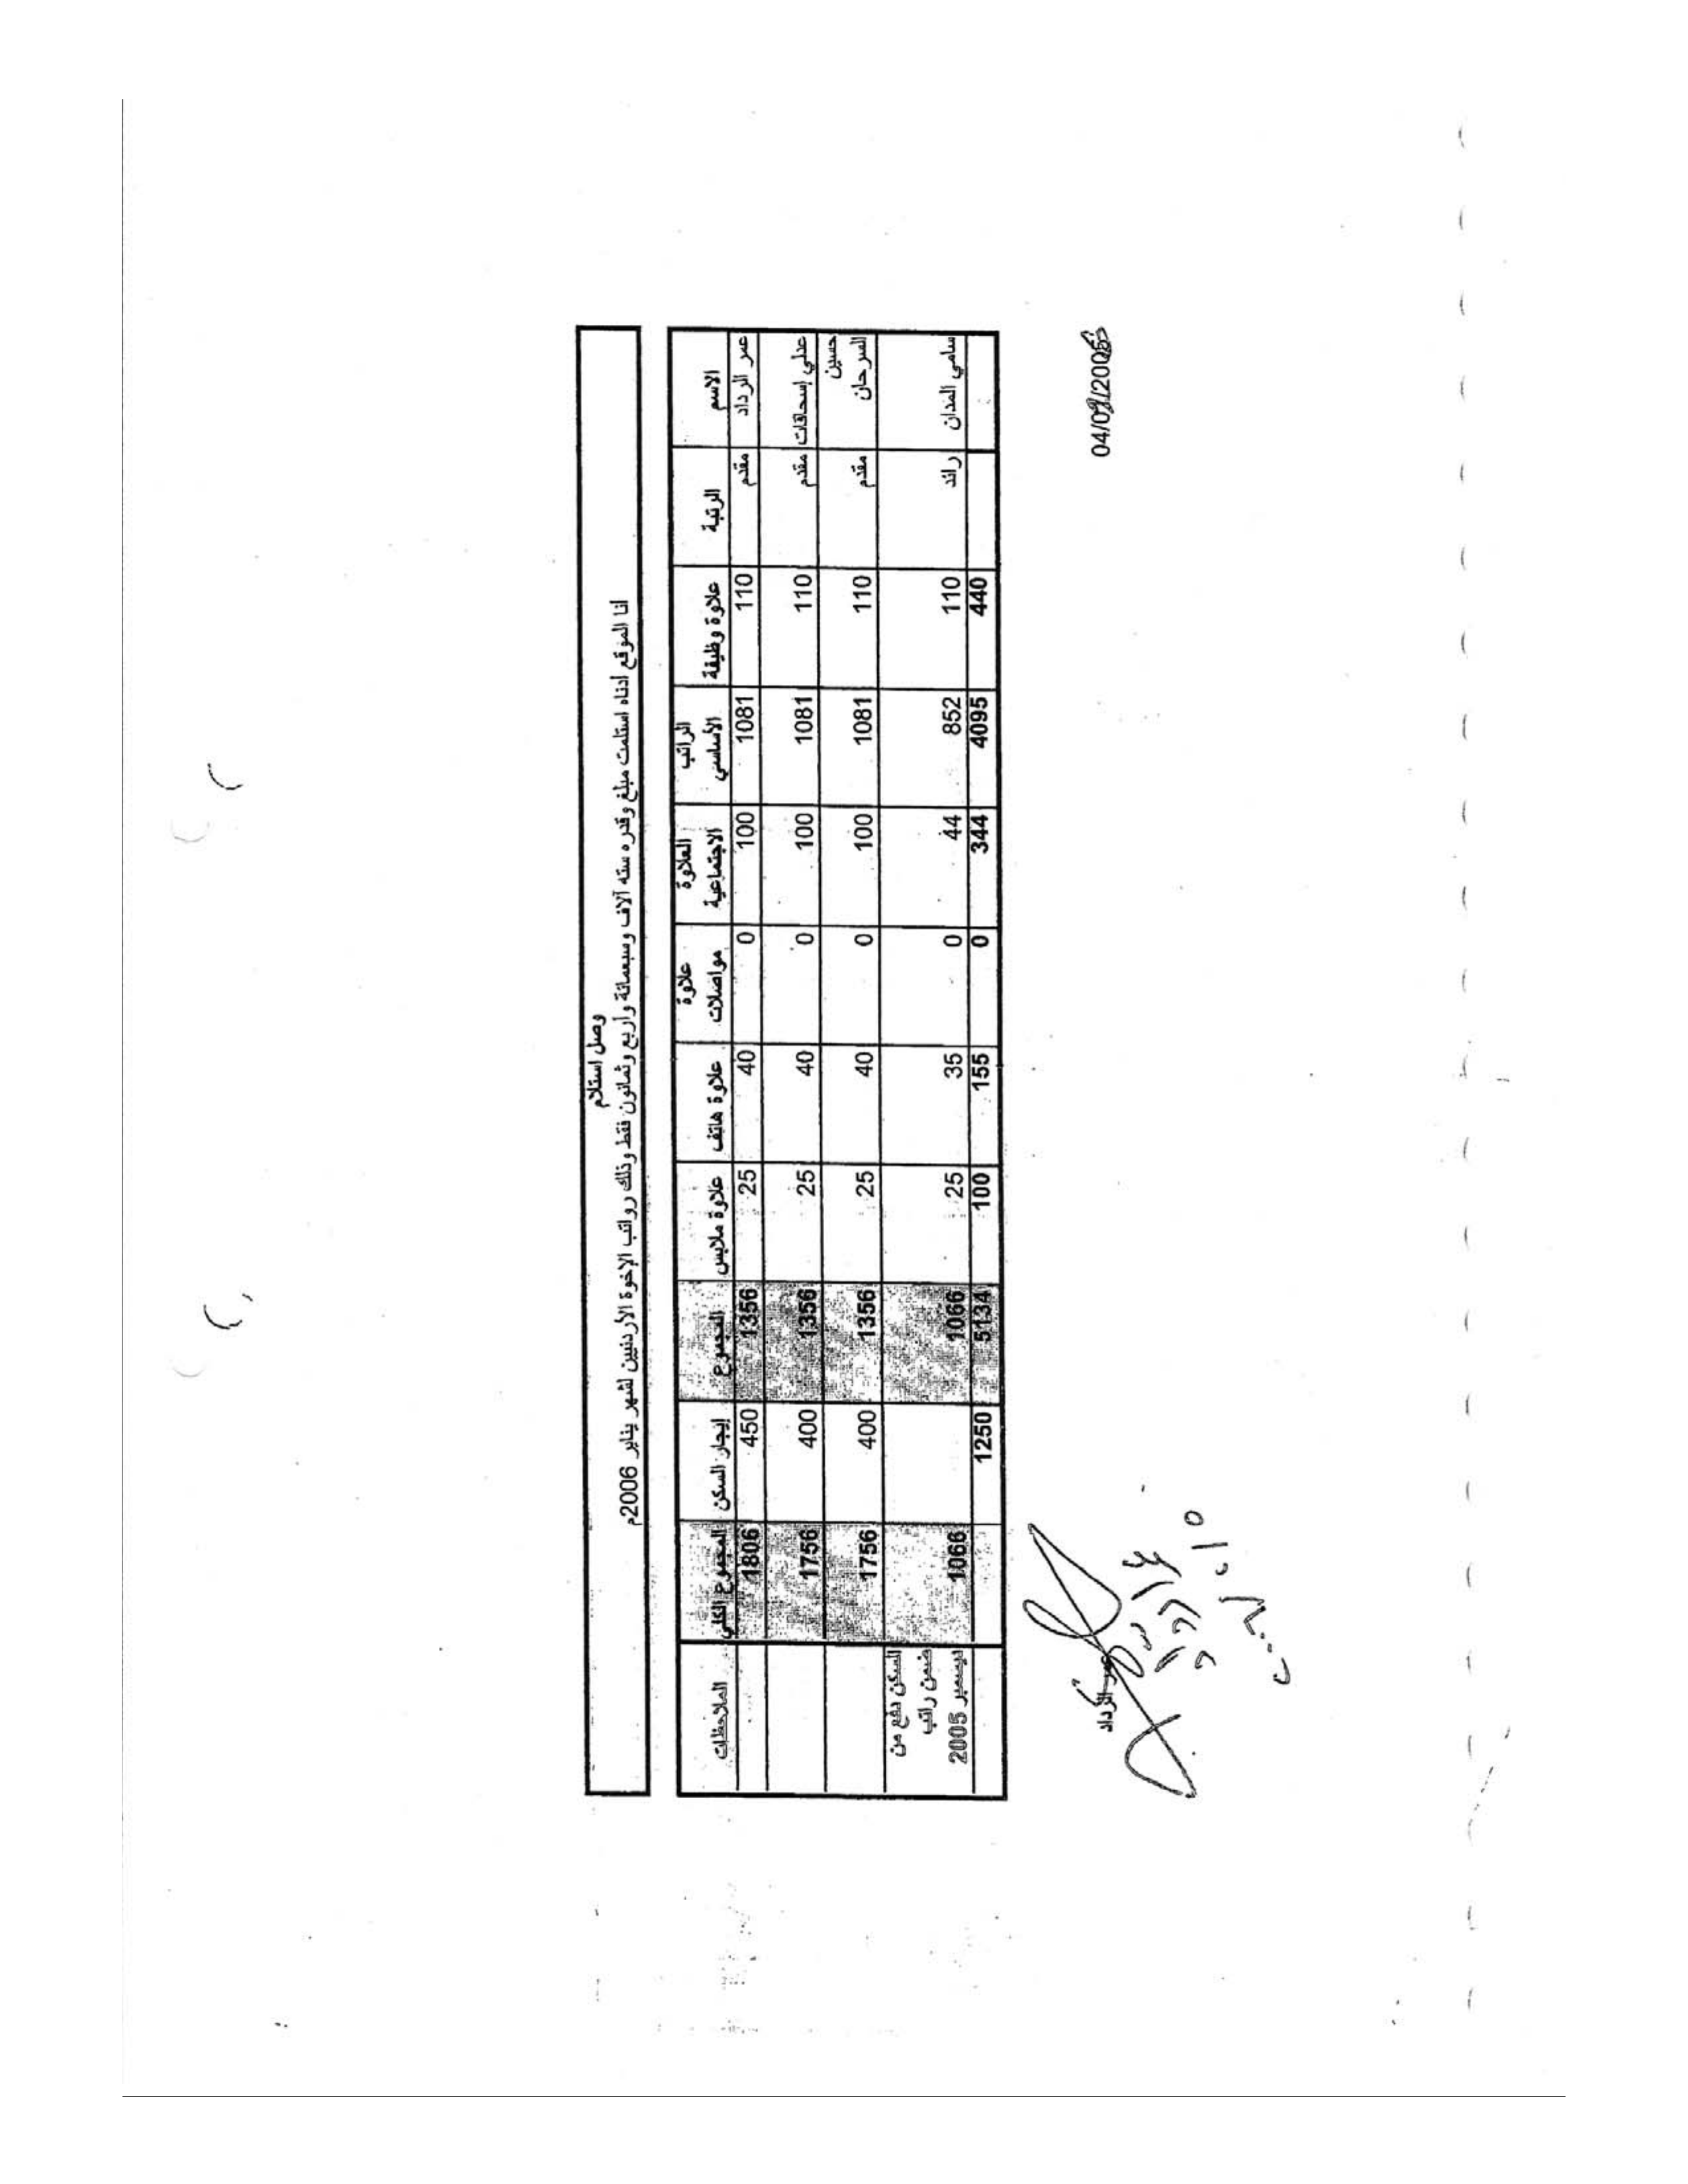 وصل استلام
انا الموقع ادناه استلمت مبلغ وقدره سته آلاف وسبعمائة وأربع وثمانون فقط وذلك رواتب الإخوة الأردنيين لشهر يناير 2006م
الاسم الرتبة علاوة وظيفة الراتب الأساسي العلاوة الاجتماعية علاوة مواصلات علاوة هاتف علاوة ملابس المجموع إيجار السكن المجموع الكلي الملاحظات
عمر الرداد مقدم 110 1081 100 0 40 25 1356 450 1806
عدلي إسحاقات مقدم 110 1081 100 0 40 25 1356 400 1756
حسين السرحان مقدم 110 1081 100 0 40 25 1356 400 1756
سامي المدان رائد 110 852 44 0 35 25 1066 1066 السكن دفع من ضمن راتب ديسمبر 2005
440 4095 344 0 155 100 5134 1250
عمر الرداد